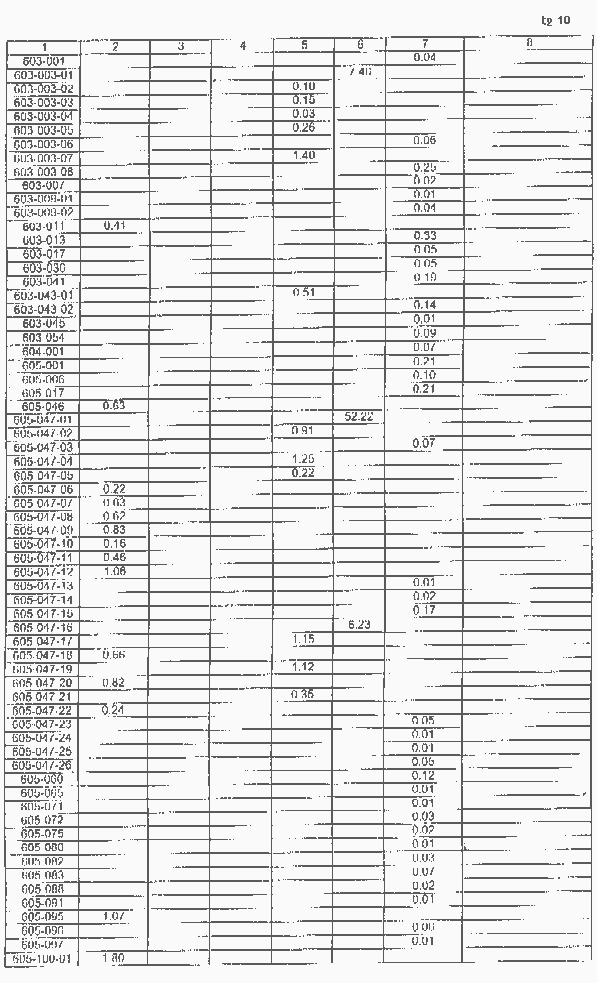 tg 10
1 2 3 4 5 6 7 8
603-001 0.04
603-003-01 7.40
603-003-02 0.10
603-003-03 0.15
603-003-04 0.03
603-003-05 0.26
603-003-06 0.06
603-003-07 1.40
603-003-08 0.25
603-007 0.02
603-009-01 0.01
603-009-02 0.04
603-011 0.41
603-013 0.33
603-017 0.05
603-030 0.05
603-041 0.19
603-043-01 0.51
603-043-02 0.14
603-045 0.01
603-054 0.09
604-001 0.07
605-001 0.21
605-006 0.10
605-017 0.21
605-046 0.63
605-047-01 52.22
605-047-02 0.91
605-047-03 0.07
605-047-04 1.25
605-047-05 0.22
605-047-06 0.22
605-047-07 0.63
605-047-08 0.62
605-047-09 0.83
605-047-10 0.16
605-047-11 0.46
605-047-12 1.06
605-047-13 0.01
605-047-14 0.02
605-047-15 0.17
605-047-16 6.23
605-047-17 1.15
605-047-18 0.66
605-047-19 1.12
605-047-20 0.82
605-047-21 0.36
605-047-22 0.24
605-047-23 0.05
605-047-24 0.01
605-047-25 0.01
605-047-26 0.05
605-060 0.12
605-065 0.01
605-071 0.01
605-072 0.03
605-075 0.02
605-080 0.01
605-082 0.03
605-083 0.07
605-088 0.02
605-091 0.01
605-095 1.07
605-096 0.06
605-097 0.01
605-100-01 1.80